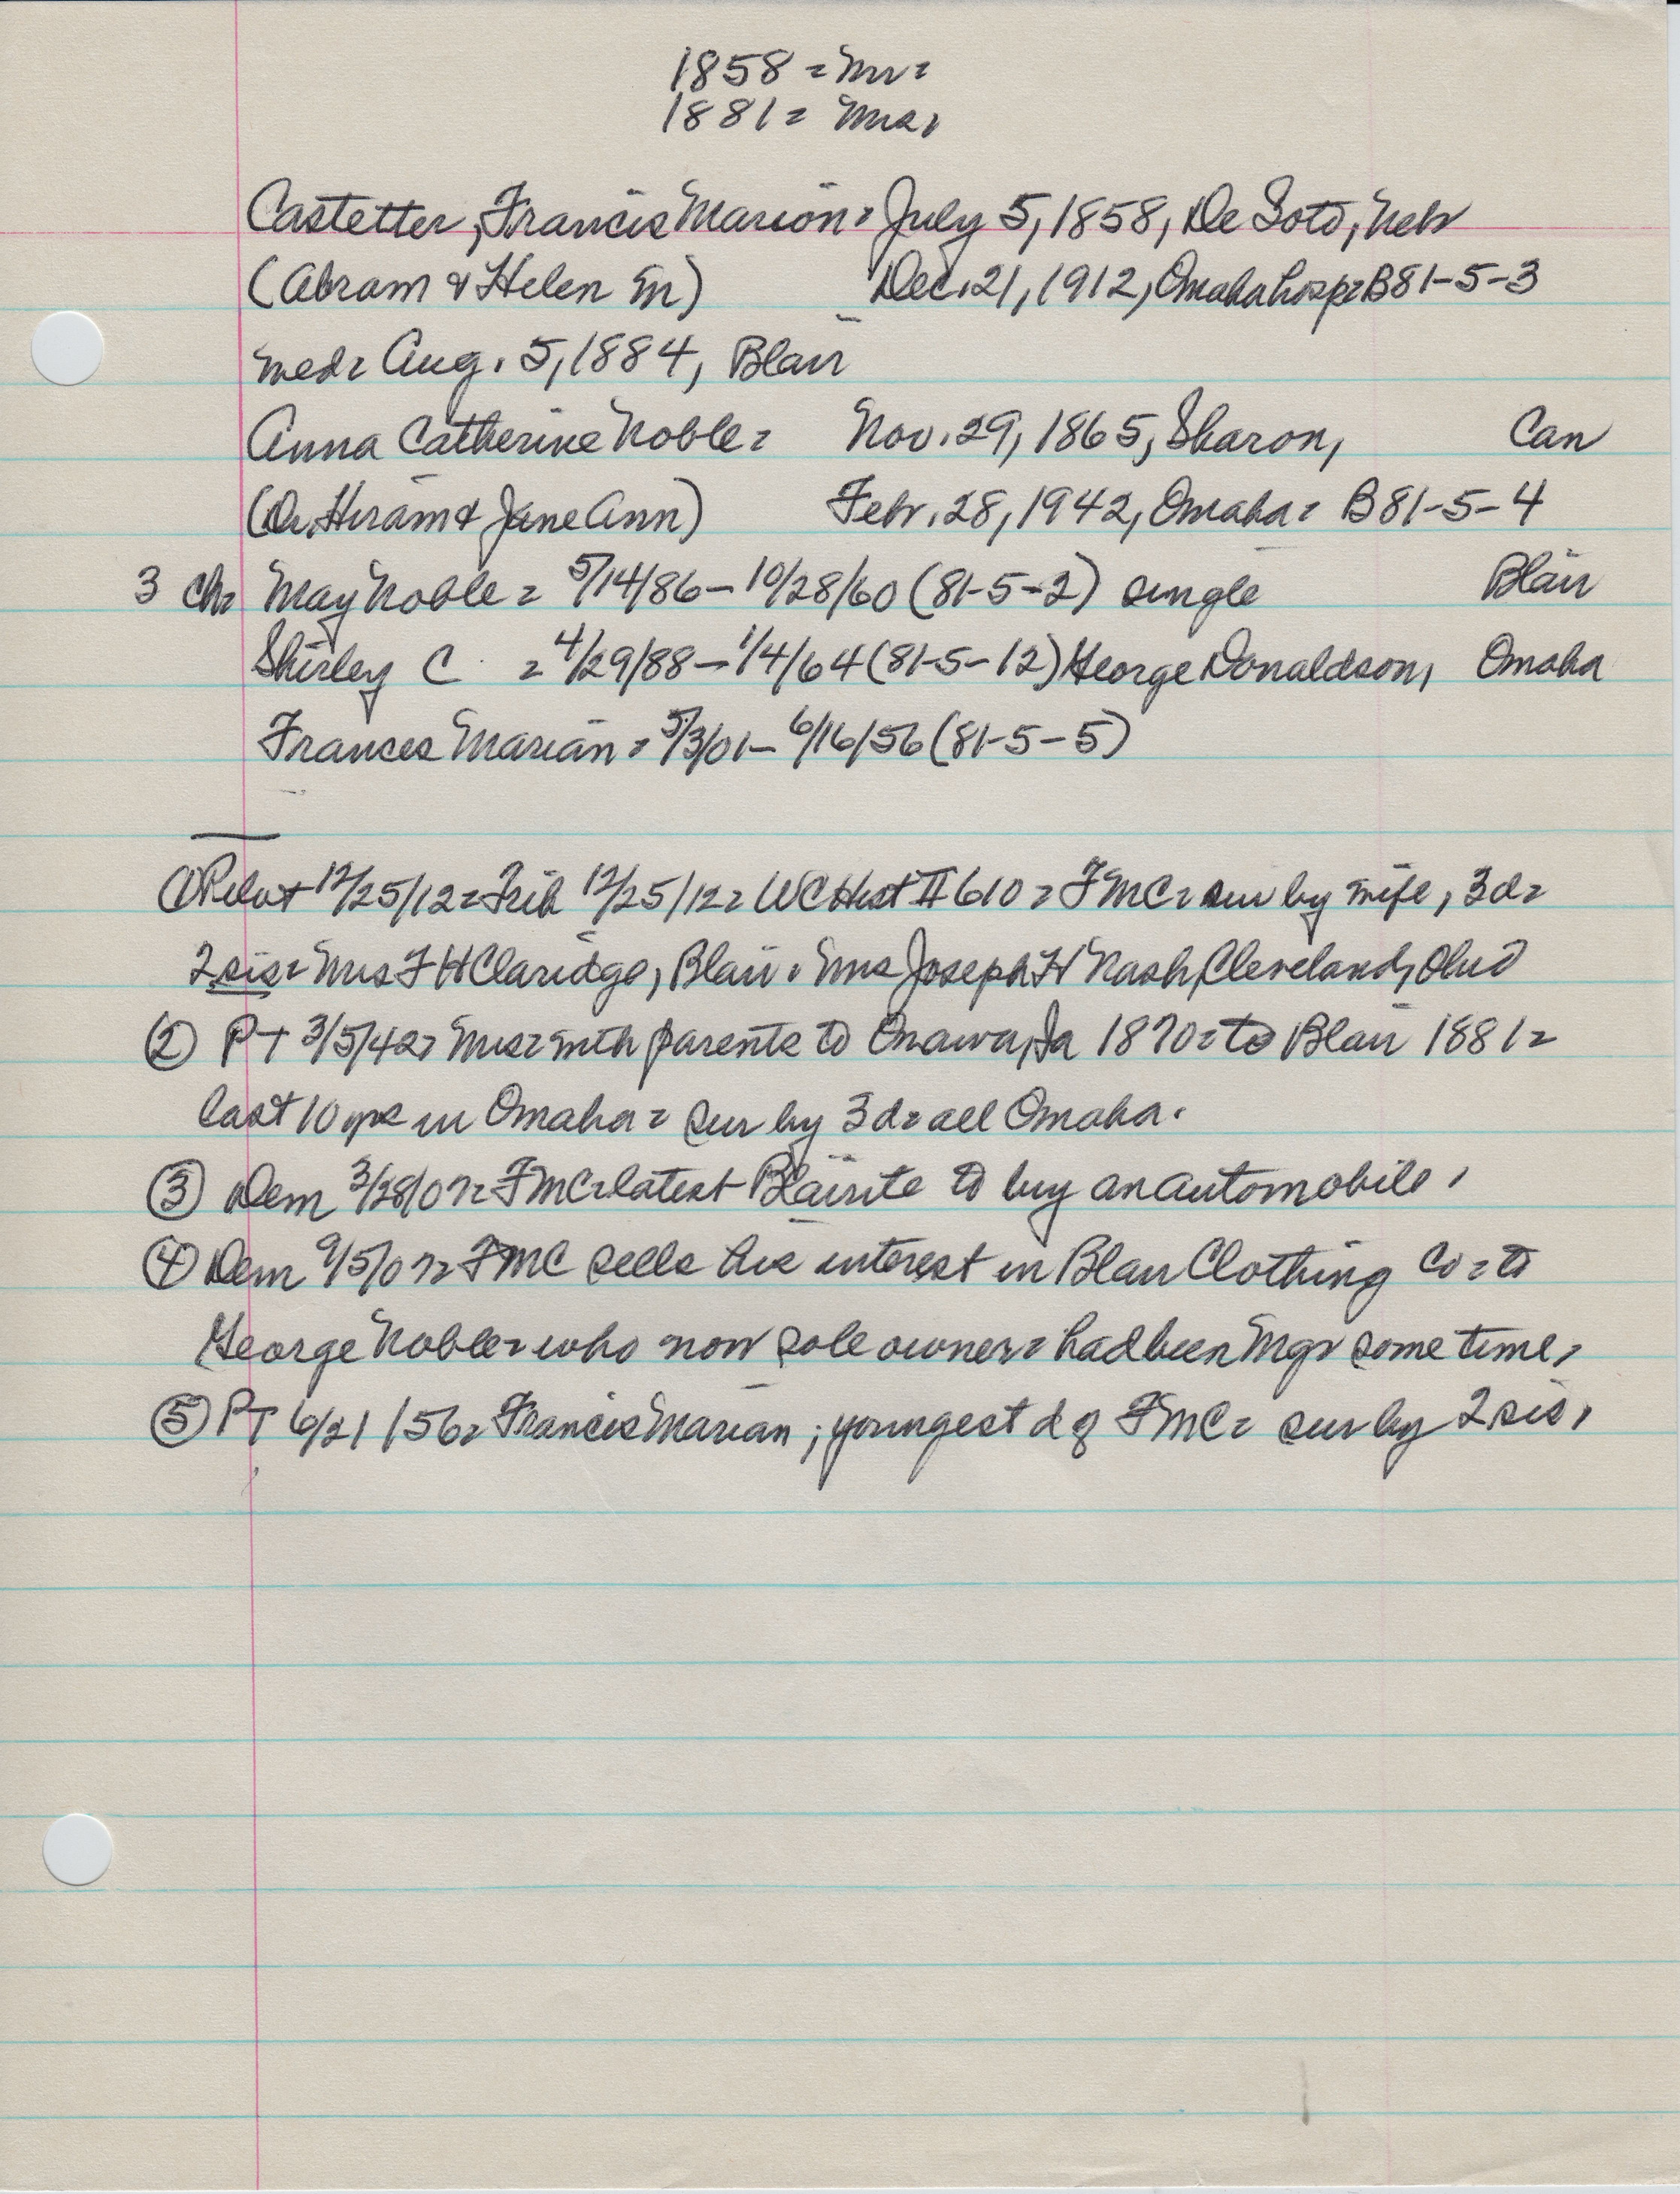 1858 = Mr =
1881 = Mrs,
Castetter, Francis Marion = July 5, 1858, De Soto, Nebr
(Abram & Helen M) Dec. 21, 1912, Omaha hosp = B81-5-3
med = Aug. 5, 1884, Blair
Anna Catherine Noble = Nov. 29, 1865, Sharon, Can
(Dr. Hiram & Jane Ann) Febr. 28, 1942, Omaha = B81-5-4
3 ch = May Noble = 5/14/86 - 10/28/60 (81-5-2) single Blair
Shirley C = 4/29/88 - 1/4/64 (81-5-12) George Donaldson, Omaha
Frances Marian = 5/3/01 - 6/16/56 (81-5-5)
① Pilot 12/25/12 = Trib 12/25/12 = WC Hist II 610 = FMC = sur by wife, 3 d =
2 sis = Mrs F H Claridge, Blair. Mrs Joseph H Nash, Cleveland, Ohio
② PT 3/5/42 = Mrs = with parents to Onawa, Ia 1870 = to Blair 1881 =
last 10 yrs in Omaha = sur by 3 d = all Omaha.
③ Dem 3/28/07 = FMC = latest Blairite to buy an automobile,
④ Dem 9/5/07 = FMC sells his interest in Blair Clothing Co = to
George Noble = who now sole owner = had been Mgr some time,
⑤ PT 6/21/56 = Francis Marian; youngest d of FMC = sur by 2 sis,